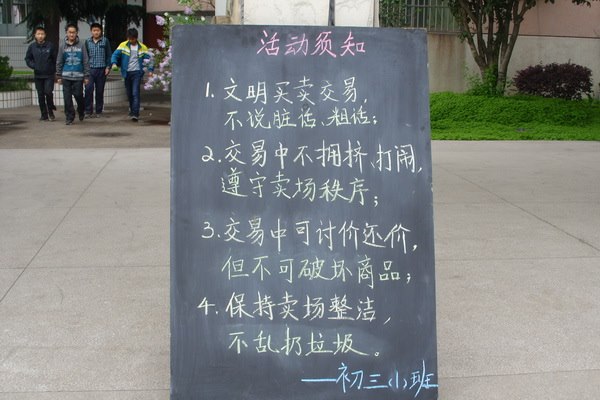 活动须知
1. 文明买卖交易,
不说脏话、粗话;
2. 交易中不拥挤、打闹,
遵守卖场秩序;
3. 交易中可讨价还价,
但不可破坏商品;
4. 保持卖场整洁,
不乱扔垃圾。
——初三(1)班